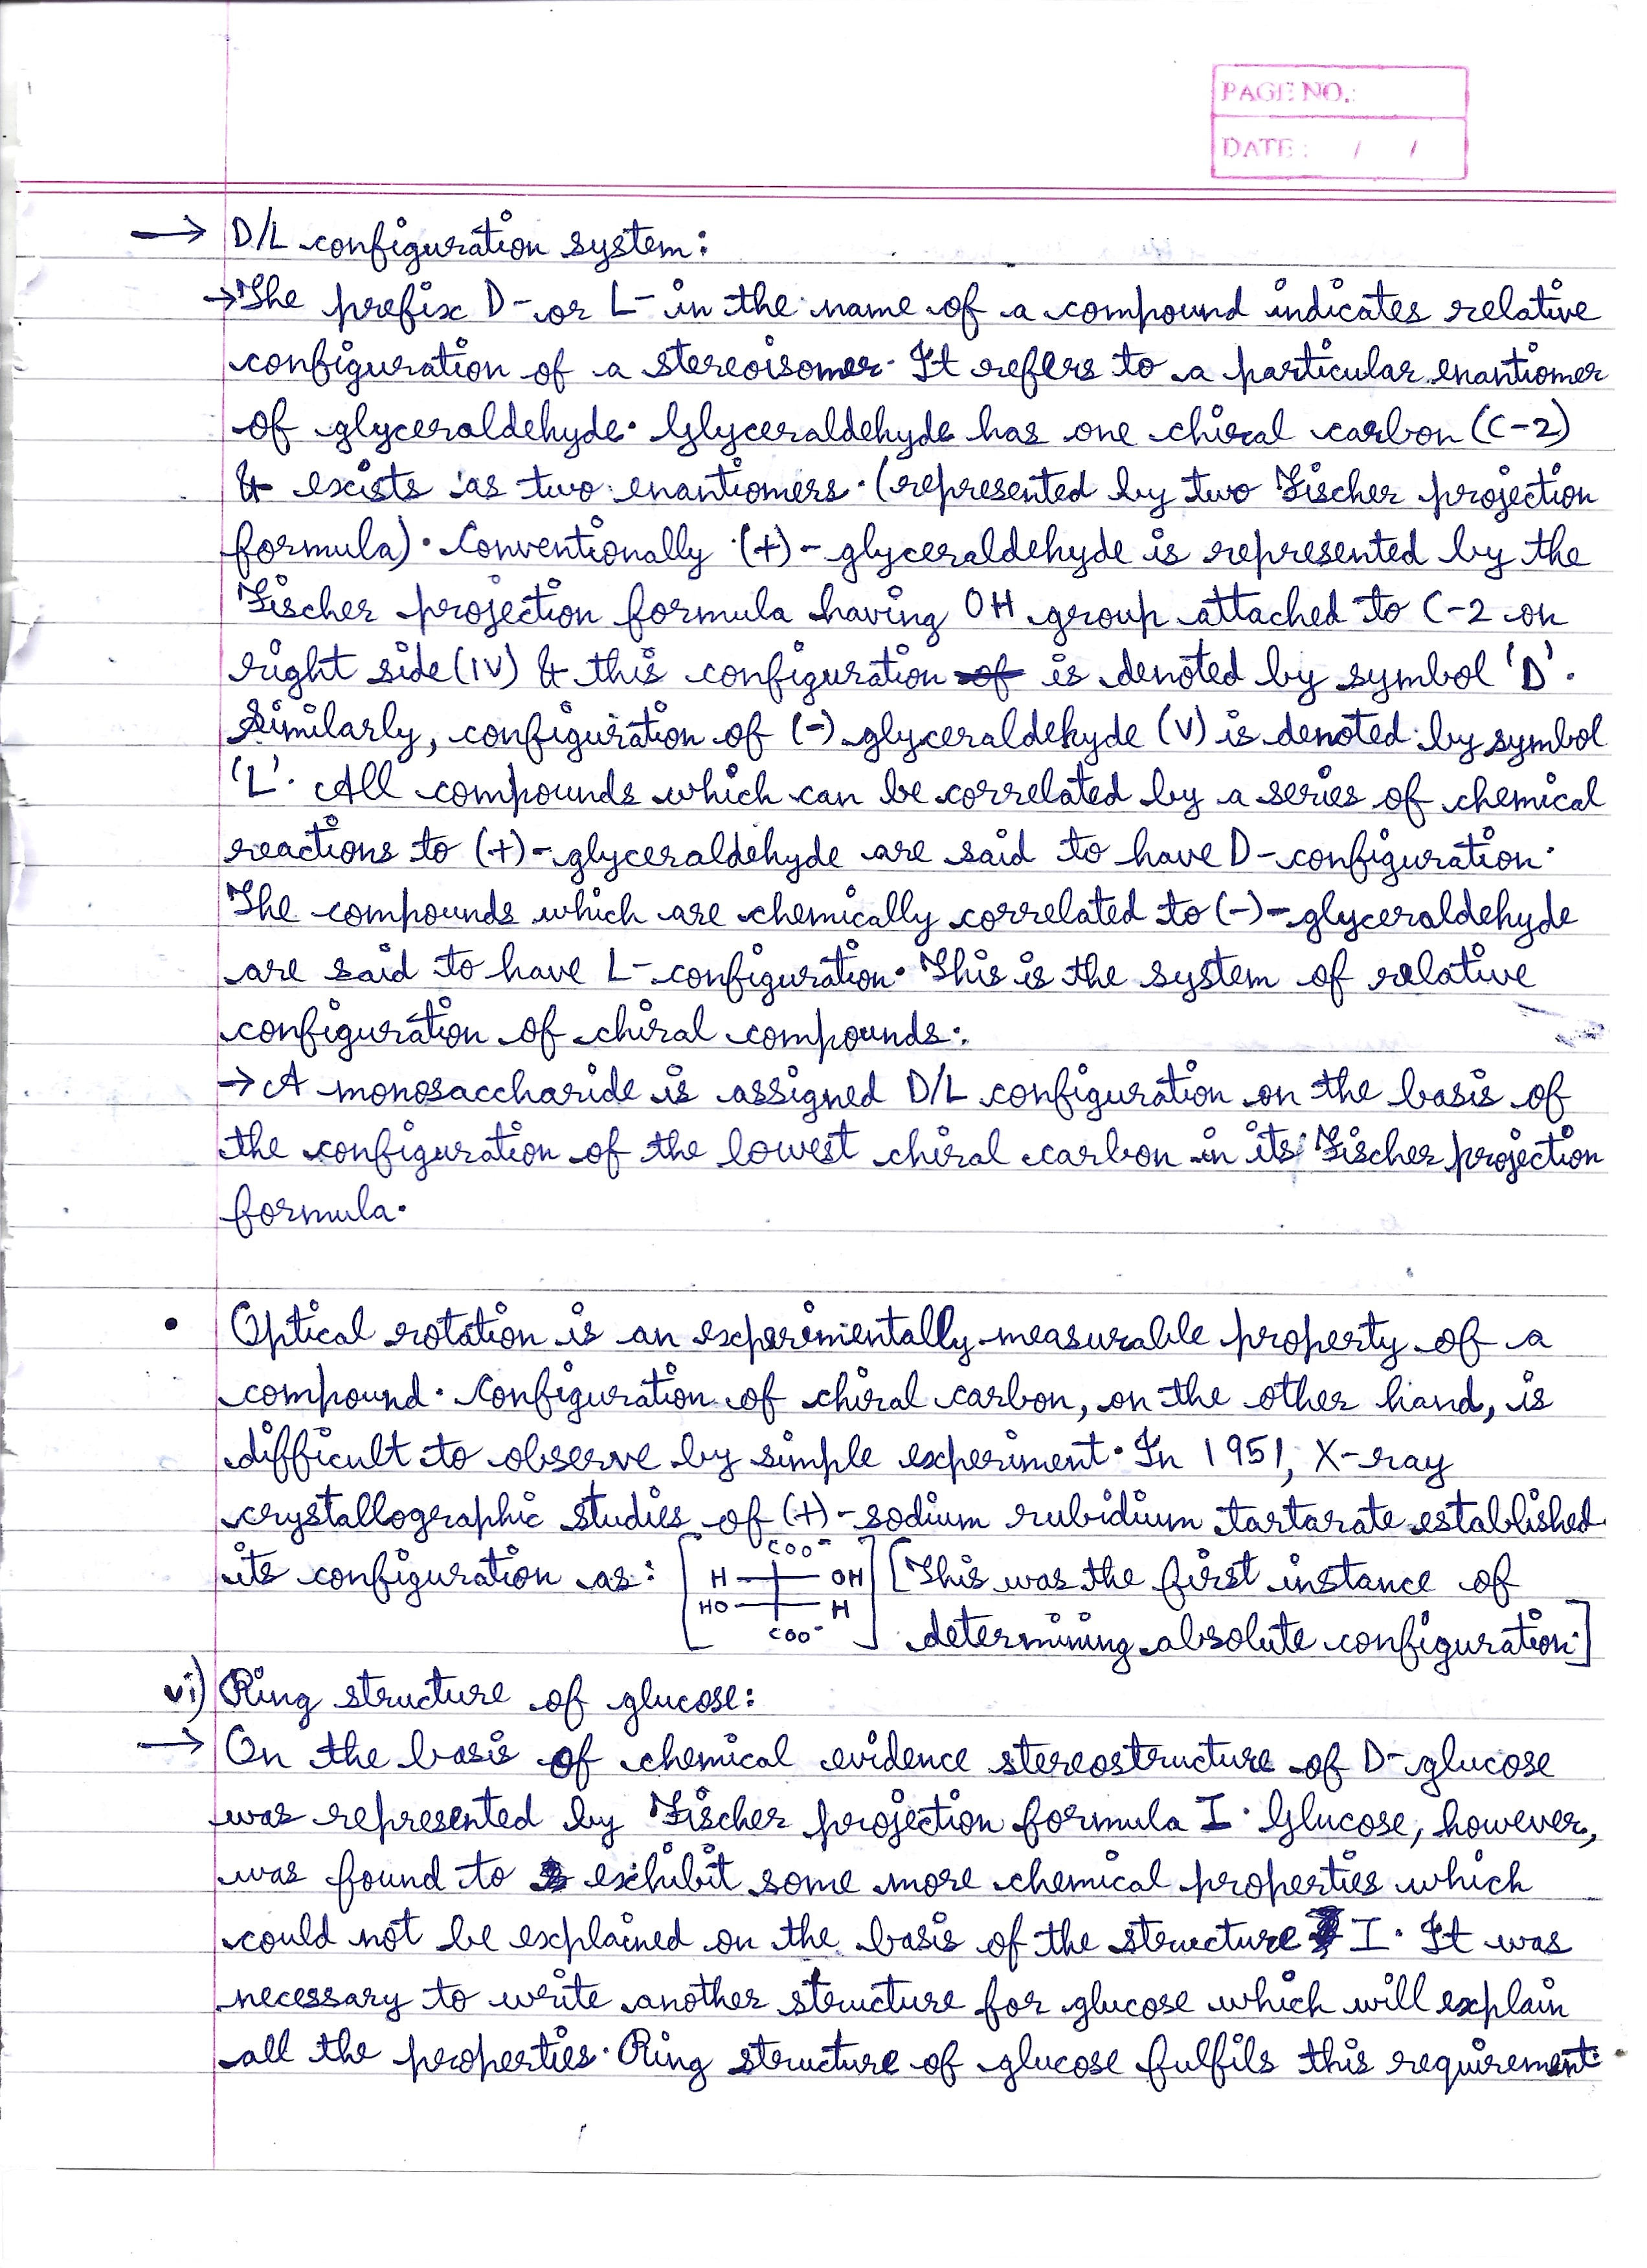 PAGE NO.:
DATE: / /
→ D/L configuration system:
→ The prefix D- or L- in the name of a compound indicates relative
configuration of a stereoisomer. It refers to a particular enantiomer
of glyceraldehyde. Glyceraldehyde has one chiral carbon (C-2)
& exists as two enantiomers. (represented by two Fischer projection
formula). Conventionally (+)-glyceraldehyde is represented by the
Fischer projection formula having OH group attached to C-2 on
right side (IV) & this configuration of is denoted by symbol 'D'.
Similarly, configuration of (-) glyceraldehyde (V) is denoted by symbol
'L'. All compounds which can be correlated by a series of chemical
reactions to (+)-glyceraldehyde are said to have D-configuration.
The compounds which are chemically correlated to (-)-glyceraldehyde
are said to have L-configuration. This is the system of relative
configuration of chiral compounds.
→ A monosaccharide is assigned D/L configuration on the basis of
the configuration of the lowest chiral carbon in its Fischer projection
formula.
• Optical rotation is an experimentally measurable property of a
compound. Configuration of chiral carbon, on the other hand, is
difficult to observe by simple experiment. In 1951, X-ray
crystallographic studies of (+)-sodium rubidium tartarate established
its configuration as: [This was the first instance of
COO⁻
H OH
HO H
COO⁻
determining absolute configuration.]
vi) Ring structure of glucose:
→ On the basis of chemical evidence stereostructure of D-glucose
was represented by Fischer projection formula I. Glucose, however,
was found to exhibit some more chemical properties which
could not be explained on the basis of the structure I. It was
necessary to write another structure for glucose which will explain
all the properties. Ring structure of glucose fulfils this requirement.